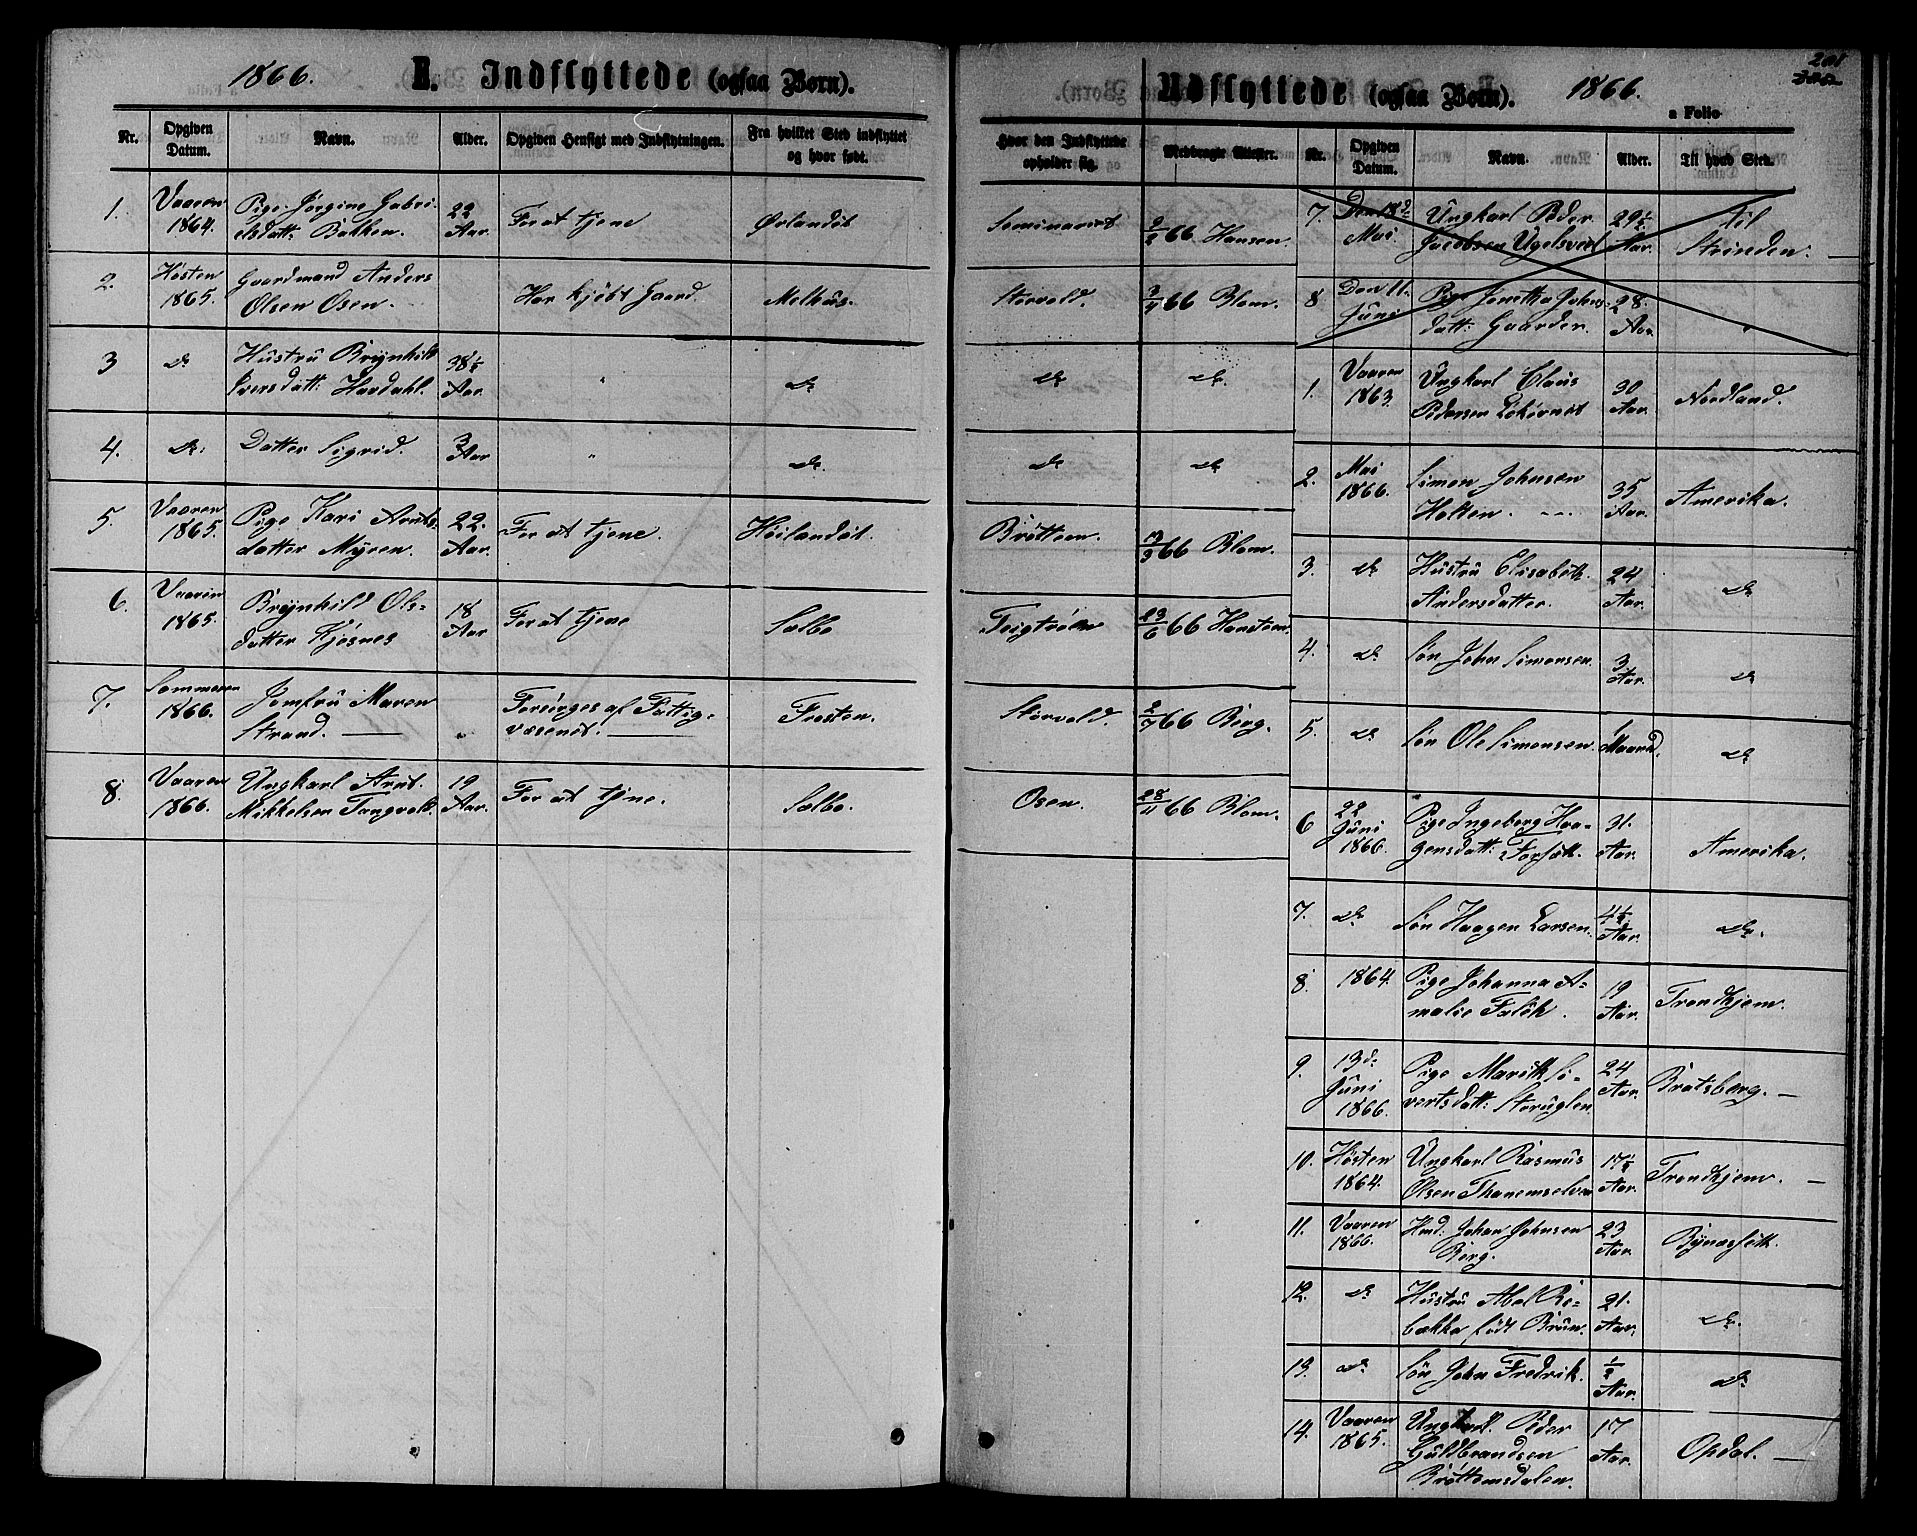 1866. E. Indflyttede (ogsaa Børn).
Nr. Opgiven Datum. Navn. Alder. Opgiven Hensigt med Indflytningen. Fra hvilket Sted indflyttet og hvor født.
1. Vaaren Pige Jørgine Gabri- 22 For at tjene Ørlandet
1864. elsdatt: Bakken. Aar.
2. Høsten Gaardmand Anders Har kjøbt Gaard. Melhus.
1865. Olsen Osen.
3 do Hustru Brynhild 38½ " do
Iversdatt: Hardahl. Aar.
4. do. Datter Sigrid. 3 Aar " do.
5. Vaaren Pige Kari Arnts- 22. For at tjene. Høilandet.
1865. datter Myren. Aar.
6. Vaaren Brynhild Ols- 18 For at tjene Selbo
1865. datter Kjøsnes Aar
7. Sommeren Jomfru Maren Forsørges af Fattig- Frosten.
1866. Strand. væsenet.
8. Vaaren Ungkarl Arnt 19 For at tjene. Selbo.
1866. Mikkelsen Tangvold. Aar.
Udflyttede (ogsaa Børn). 1866.
201
a Folio
Hvor den Indflyttede opholder sig. Medbragte Attester.
Seminariet 9/2 66 Hansen.
Storvold. 3/4 66 Blom.
do do.
do do
Brøttem. 13/3 66 Blom.
Teigtrøen 23/6 66 Hanssen.
Storvold. 2/7 66 Berg.
Osen. 28/11 66 Blom.
Nr. Opgiven Datum. Navn. Alder. Til hvad Sted.
7. Den 18d Ungkarl Peder 29½ til
Mai Jacobsen Ugelsveel Aar. Strinden.
8 Den 11. Pige Jonetha Johns- 28.
Juni datt: Gaarden. Aar.
1. Vaaren Ungkarl Claus 30 Nordland.
1863. Pedersen Aar.
2. Mai Simon Johnsen 35 Amerika.
1866. Holten. Aar.
3. do Hustru Elisabeth 24 do
Andersdatter. Aar.
4. do Søn John Simonsen. 3 Aar. do
5. do Søn Ole Simonsen. 1 Maaned. do
6 22 Pige Ingeborg Haa- 31. Amerika.
Juni gensdatt: Forseth. Aar.
1866.
7. do Søn Haagen Larsen. 4½ Aar. do.
8. 1864. Pige Johanna A- 19 Trondhjem.
malie Falck. Aar.
9. 13d Pige Marith Si- 24 Bratsberg.
Juni vertsdatt: Storuglen Aar.
1866.
10. Høsten Ungkarl Rasmus 17½ Trondhjem.
1864. Olsen Thanemselven Aar.
11. Vaaren Hmd. Johan Johnsen 23 Bynæsset.
1866. Berg. Aar.
12. do Hustru Abel Re- 21. do.
bekka født Bruun. Aar.
13. do Søn John Fredrik. ½ Aar. do
14. Vaaren Ungkarl Peder 17 Opdal.
1865. Guldbrandsen Aar.
Brøttemsdalen.